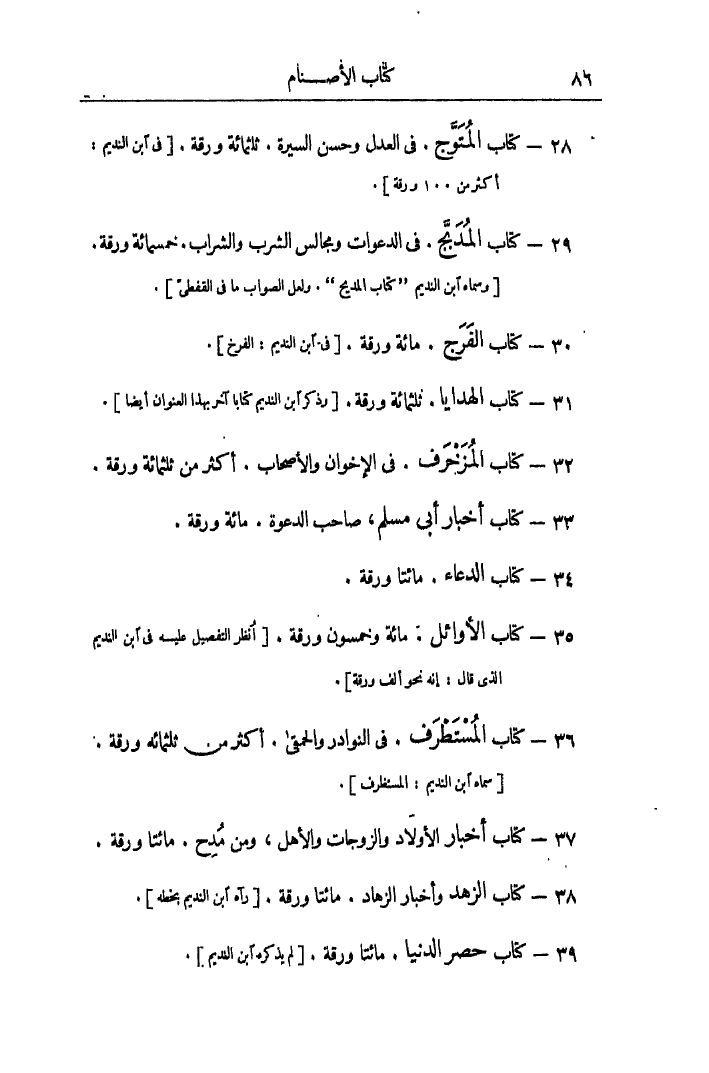 ٨٦ كتاب الأصنام
٢٨ — كتاب المُتَوَّج . فى العدل وحسن السيرة . ثلثمائة ورقة . [ فى ٱبن النديم :
أكثر من ١٠٠ ورقة ] .
٢٩ — كتاب المُدَبَّج . فى الدعوات ومجالس الشرب والشراب . خمسمائة ورقة .
[ وسماه ٱبن النديم ”كتاب المديح“ . ولعل الصواب ما فى القفطىّ ] .
٣٠ — كتاب الفَرَج . مائة ورقة . [ فى ٱبن النديم : الفرخ ] .
٣١ — كتاب الهدايا . ثلثمائة ورقة . [ وذكر ٱبن النديم كتابا آخر بهذا العنوان أيضا ] .
٣٢ — كتاب المُزَخْرَف . فى الإخوان والأصحاب . أكثر من ثلثمائة ورقة .
٣٣ — كتاب أخبار أبى مسلم، صاحب الدعوة . مائة ورقة .
٣٤ — كتاب الدعاء . مائتا ورقة .
٣٥ — كتاب الأوائل : مائة وخمسون ورقة . [ ٱنظر التفصيل عليه فى ٱبن النديم
الذى قال : إنه نحو ألف ورقة ] .
٣٦ — كتاب المُسْتَطْرَف . فى النوادر والحمقىٰ . أكثر من ثلثمائه ورقة .
[ سماه ٱبن النديم : المستظرف ] .
٣٧ — كتاب أخبار الأولاد والزوجات والأهل ، ومن مُدِح . مائتا ورقة .
٣٨ — كتاب الزهد وأخبار الزهاد . مائتا ورقة . [ رآه ٱبن النديم بخطه ] .
٣٩ — كتاب حصر الدنيا . مائتا ورقة . [ لم يذكره ٱبن النديم ] .